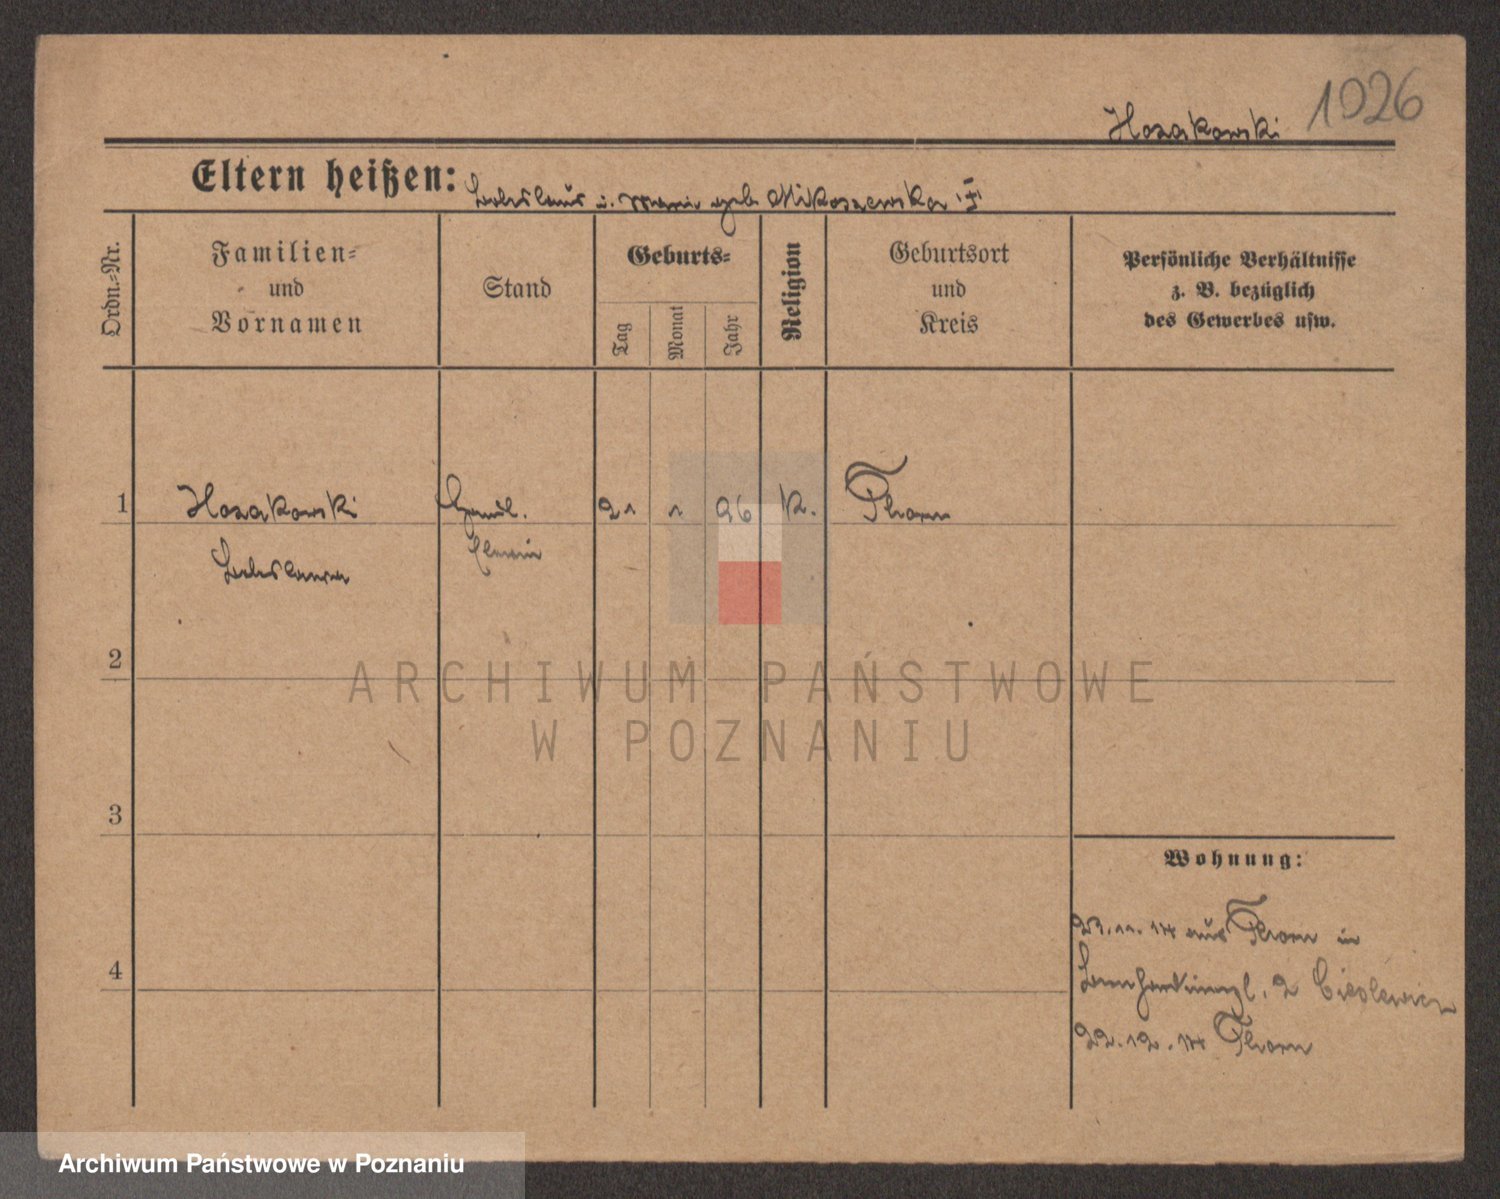 Hozakowski 1026
Eltern heißen: Boleslaus u. Marie geb Mikoszewska
Ordn.-Nr.
Familien-
und
Vornamen
Stand
Geburts-
Tag
Monat
Jahr
Religion
Geburtsort
und
Kreis
Persönliche Verhältnisse
z. B. bezüglich
des Gewerbes usw.
1
Hozakowski
Boleslawa
21 1 96 K. Thorn
2
3
4
ARCHIWUM PAŃSTWOWE
W POZNANIU
Wohnung:
aus Thorn in
2 Cieslewicz
22.12.14 Thorn
Archiwum Państwowe w Poznaniu